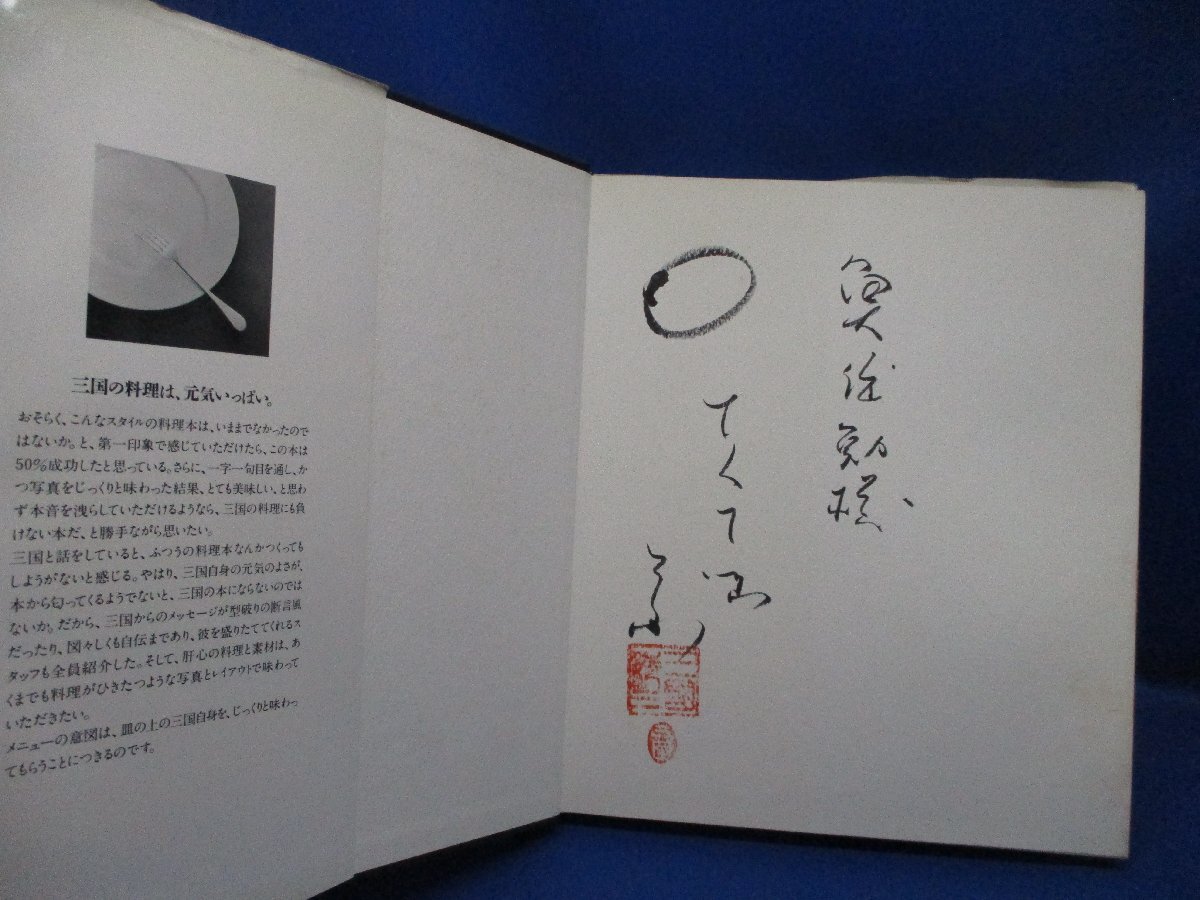 三国の料理は、元気いっぱい。
おそらく、こんなスタイルの料理本は、いままでなかったので
はないか。と、第一印象で感じていただけたら、この本は
50%成功したと思っている。さらに、一字一句目を通し、か
つ写真をじっくりと味わった結果、とても美味しい、と思わ
ず本音を洩らしていただけるようなら、三国の料理にも負
けない本だ、と勝手ながら思いたい。
三国と話をしていると、ふつうの料理本なんかつくっても
しようがないと感じる。やはり、三国自身の元気のよさが、
本から匂ってくるようでないと、三国の本にならないのでは
ないか。だから、三国からのメッセージが型破りの断言風
だったり、図々しくも自伝まであり、彼を盛りたててくれるス
タッフも全員紹介した。そして、肝心の料理と素材は、あ
くまでも料理がひきたつような写真とレイアウトで味わって
いただきたい。
メニューの意図は、皿の上の三国自身を、じっくりと味わっ
てもらうことにつきるのです。
勉様